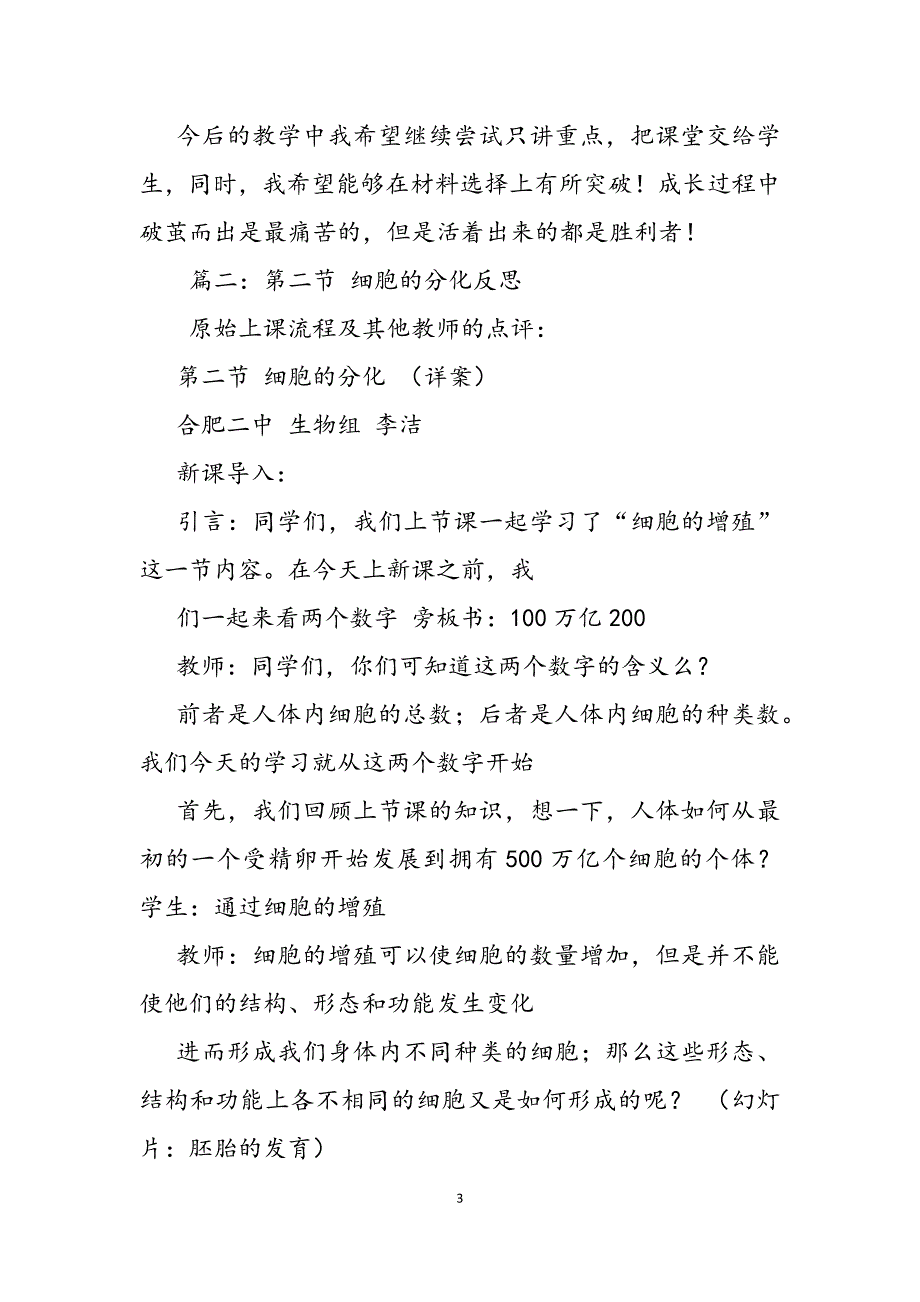 今后的教学中我希望继续尝试只讲重点，把课堂交给学
生，同时，我希望能够在材料选择上有所突破！成长过程中
破茧而出是最痛苦的，但是活着出来的都是胜利者！
篇二：第二节 细胞的分化反思
原始上课流程及其他教师的点评：
第二节 细胞的分化 （详案）
合肥二中 生物组 李洁
新课导入：
引言：同学们，我们上节课一起学习了“细胞的增殖”
这一节内容。在今天上新课之前，我
们一起来看两个数字 旁板书：100 万亿 200
教师：同学们，你们可知道这两个数字的含义么？
前者是人体内细胞的总数；后者是人体内细胞的种类数。
我们今天的学习就从这两个数字开始
首先，我们回顾上节课的知识，想一下，人体如何从最
初的一个受精卵开始发展到拥有 500 万亿个细胞的个体？
学生：通过细胞的增殖
教师：细胞的增殖可以使细胞的数量增加，但是并不能
使他们的结构、形态和功能发生变化
进而形成我们身体内不同种类的细胞；那么这些形态、
结构和功能上各不相同的细胞又是如何形成的呢？ （幻灯
片：胚胎的发育）
3